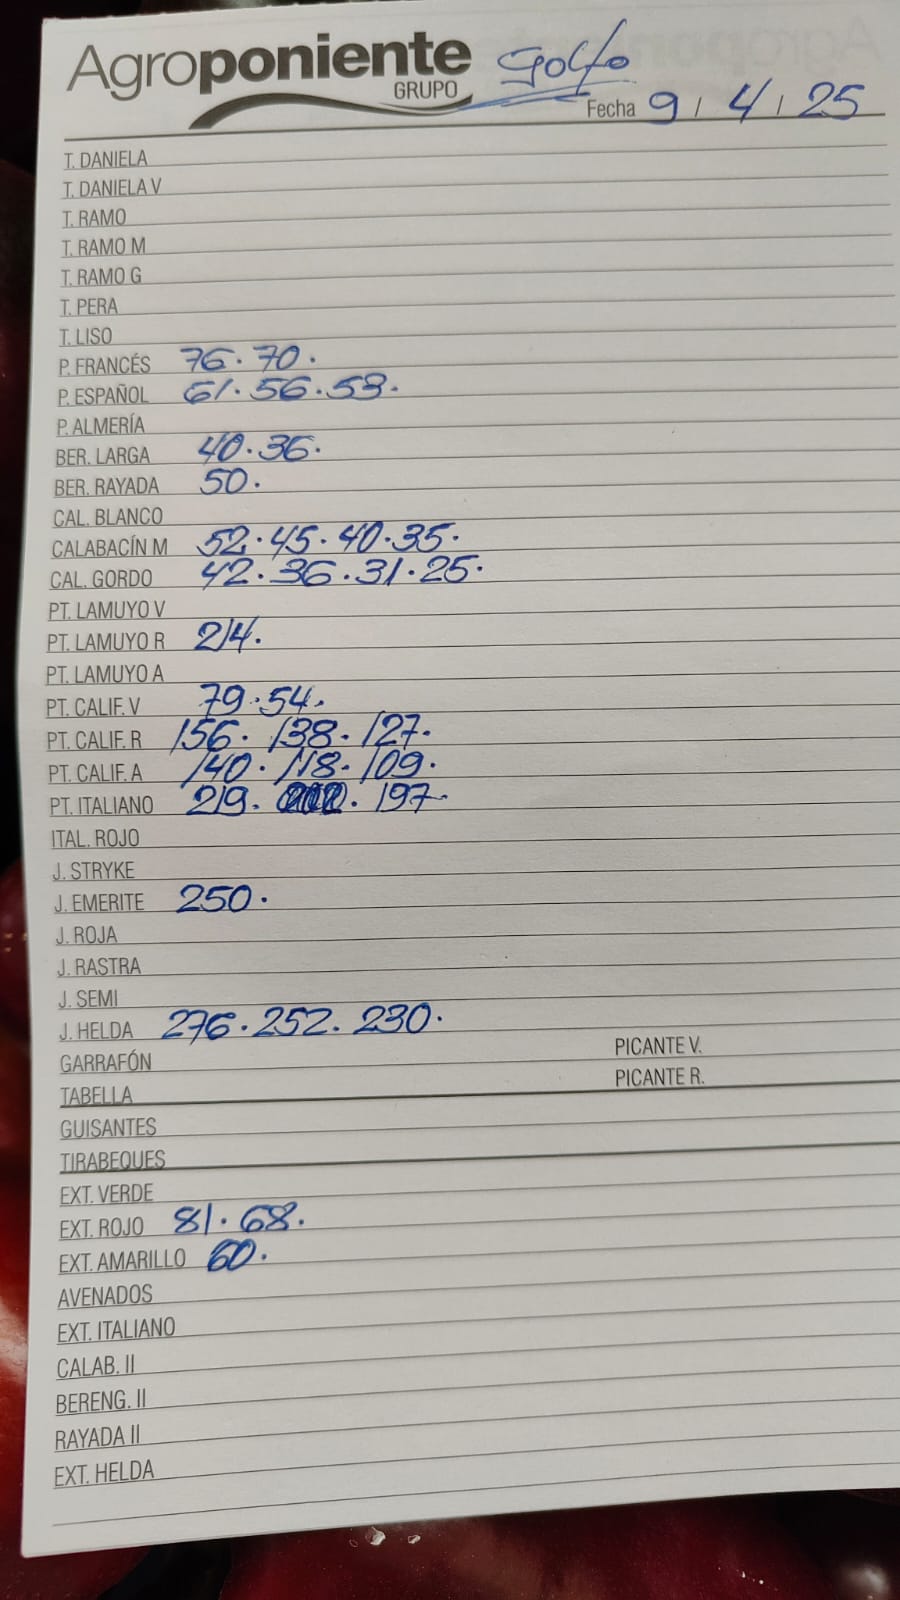 Agroponiente
GRUPO
Golfo
Fecha 9 / 4 / 25
T. DANIELA
T. DANIELA V
T. RAMO
T. RAMO M
T. RAMO G
T. PERA
T. LISO
P. FRANCÉS 76. 70.
P. ESPAÑOL 61. 56. 53.
P. ALMERÍA
BER. LARGA 40. 36.
BER. RAYADA 50.
CAL. BLANCO
CALABACÍN M 52. 45. 40. 35.
CAL. GORDO 42. 36. 31. 25.
PT. LAMUYO V
PT. LAMUYO R 214.
PT. LAMUYO A
PT. CALIF. V 79. 54.
PT. CALIF. R 156. 138. 127.
PT. CALIF. A 140. 118. 109.
PT. ITALIANO 219. 197.
ITAL. ROJO
J. STRYKE
J. EMERITE 250.
J. ROJA
J. RASTRA
J. SEMI
J. HELDA 276. 252. 230.
GARRAFÓN PICANTE V.
TABELLA PICANTE R.
GUISANTES
TIRABEQUES
EXT. VERDE
EXT. ROJO 81. 68.
EXT. AMARILLO 60.
AVENADOS
EXT. ITALIANO
CALAB. II
BERENG. II
RAYADA II
EXT. HELDA